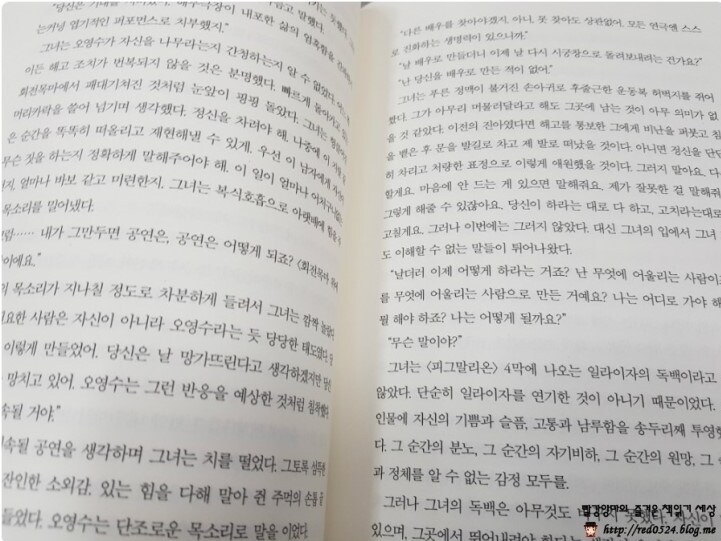 "당신은
는커녕 엽기적인 퍼포먼스로 치부했지."
그녀는 오영수가 자신을 나무라는지 간청하는지 알 수 없었다.
이든 해고 조치가 번복되지 않을 것은 분명했다. 빠르게 돌아가는
회전목마에서 패대기쳐진 것처럼 눈앞이 핑핑 돌았다. 그녀는
머리카락을 쓸어 넘기며 생각했다. 정신을 차려야 해. 나중에 이
은 순간을 똑똑히 떠올리고 재현해낼 수 있게. 우선 이 남자에게
무슨 짓을 하는지 정확하게 말해주어야 해. 이 일이 얼마나
지. 얼마나 바보 같고 미련한지. 그녀는 복식호흡으로 아랫배에 힘을
목소리를 밀어냈다.
…… 내가 그만두면 공연은, 공연은 어떻게 되죠? 〈회전목마
이에요."
목소리가 지나칠 정도로 차분하게 들려서 그녀는 깜짝 놀랐다.
요한 사람은 자신이 아니라 오영수라는 듯 당당한 태도였다.
이렇게 만들었어. 당신은 날 망가뜨린다고 생각하겠지만
망치고 있어. 오영수는 그런 반응을 예상한 것처럼 침묵했다.
속될 거야."
속될 공연을 생각하며 그녀는 치를 떨었다. 그토록
잔인한 소외감. 있는 힘을 다해 말아 쥔 주먹의 손톱 끝
들었다. 오영수는 단조로운 목소리로 말을 이었다.
"다른 배우를 찾아야겠지. 아니, 못 찾아도 상관없어. 모든 연극엔 스스
로 진화하는 생명력이 있으니까."
"날 배우로 만들더니 이제 날 다시 시궁창으로 돌려보내려는 건가요?"
"난 당신을 배우로 만든 적이 없어."
그녀는 푸른 정맥이 불거진 손아귀로 후줄근한 운동복 허벅지를 쥐어
했다. 그가 아무리 머물러달라고 해도 그곳에 남는 것이 아무 의미가 없
을 것 같았다. 이전의 진아였다면 해고를 통보한 그에게 비난을 퍼붓고 침
을 뱉은 후 문을 발길로 차고 제 발로 떠났을 것이다. 아니면 정신을 단단
히 차리고 처량한 표정으로 이렇게 애원했을 것이다. 그러지 말아요. 다
할게요. 마음에 안 드는 게 있으면 말해줘요. 제가 잘못한 걸 말해주
그렇게 해줄 수 있잖아요. 당신이 하라는 대로 다 하고, 고치라는대로
고칠게요. 그러나 이번에는 그러지 않았다. 대신 그녀의 입에서 그녀
도 이해할 수 없는 말들이 튀어나왔다.
"날더러 이제 어떻게 하라는 거죠? 난 무엇에 어울리는 사람이죠
를 무엇에 어울리는 사람으로 만든 거예요? 나는 어디로 가야 해
뭘 해야 하죠? 나는 어떻게 될까요?"
"무슨 말이야?"
그녀는 〈피그말리온〉 4막에 나오는 일라이자의 독백이라고
않았다. 단순히 일라이자를 연기한 것이 아니기 때문이었다.
인물에 자신의 기쁨과 슬픔, 고통과 남루함을 송두리째 투영했
다. 그 순간의 분노, 그 순간의 자기비하, 그 순간의 원망, 그
과 정체를 알 수 없는 감정 모두를.
그러나 그녀의 독백은 아무것도
있으며, 그곳에서
빨강앙마의 즐거운 책읽기 세상
http://red0524.blog.me